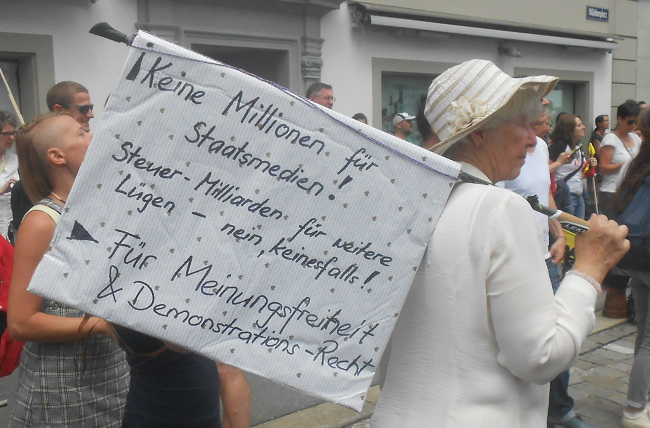 Keine Millionen für
Staatsmedien!
Steuer-Milliarden für weitere
Lügen – nein, keinesfalls!
Für Meinungsfreiheit
& Demonstrations-Recht